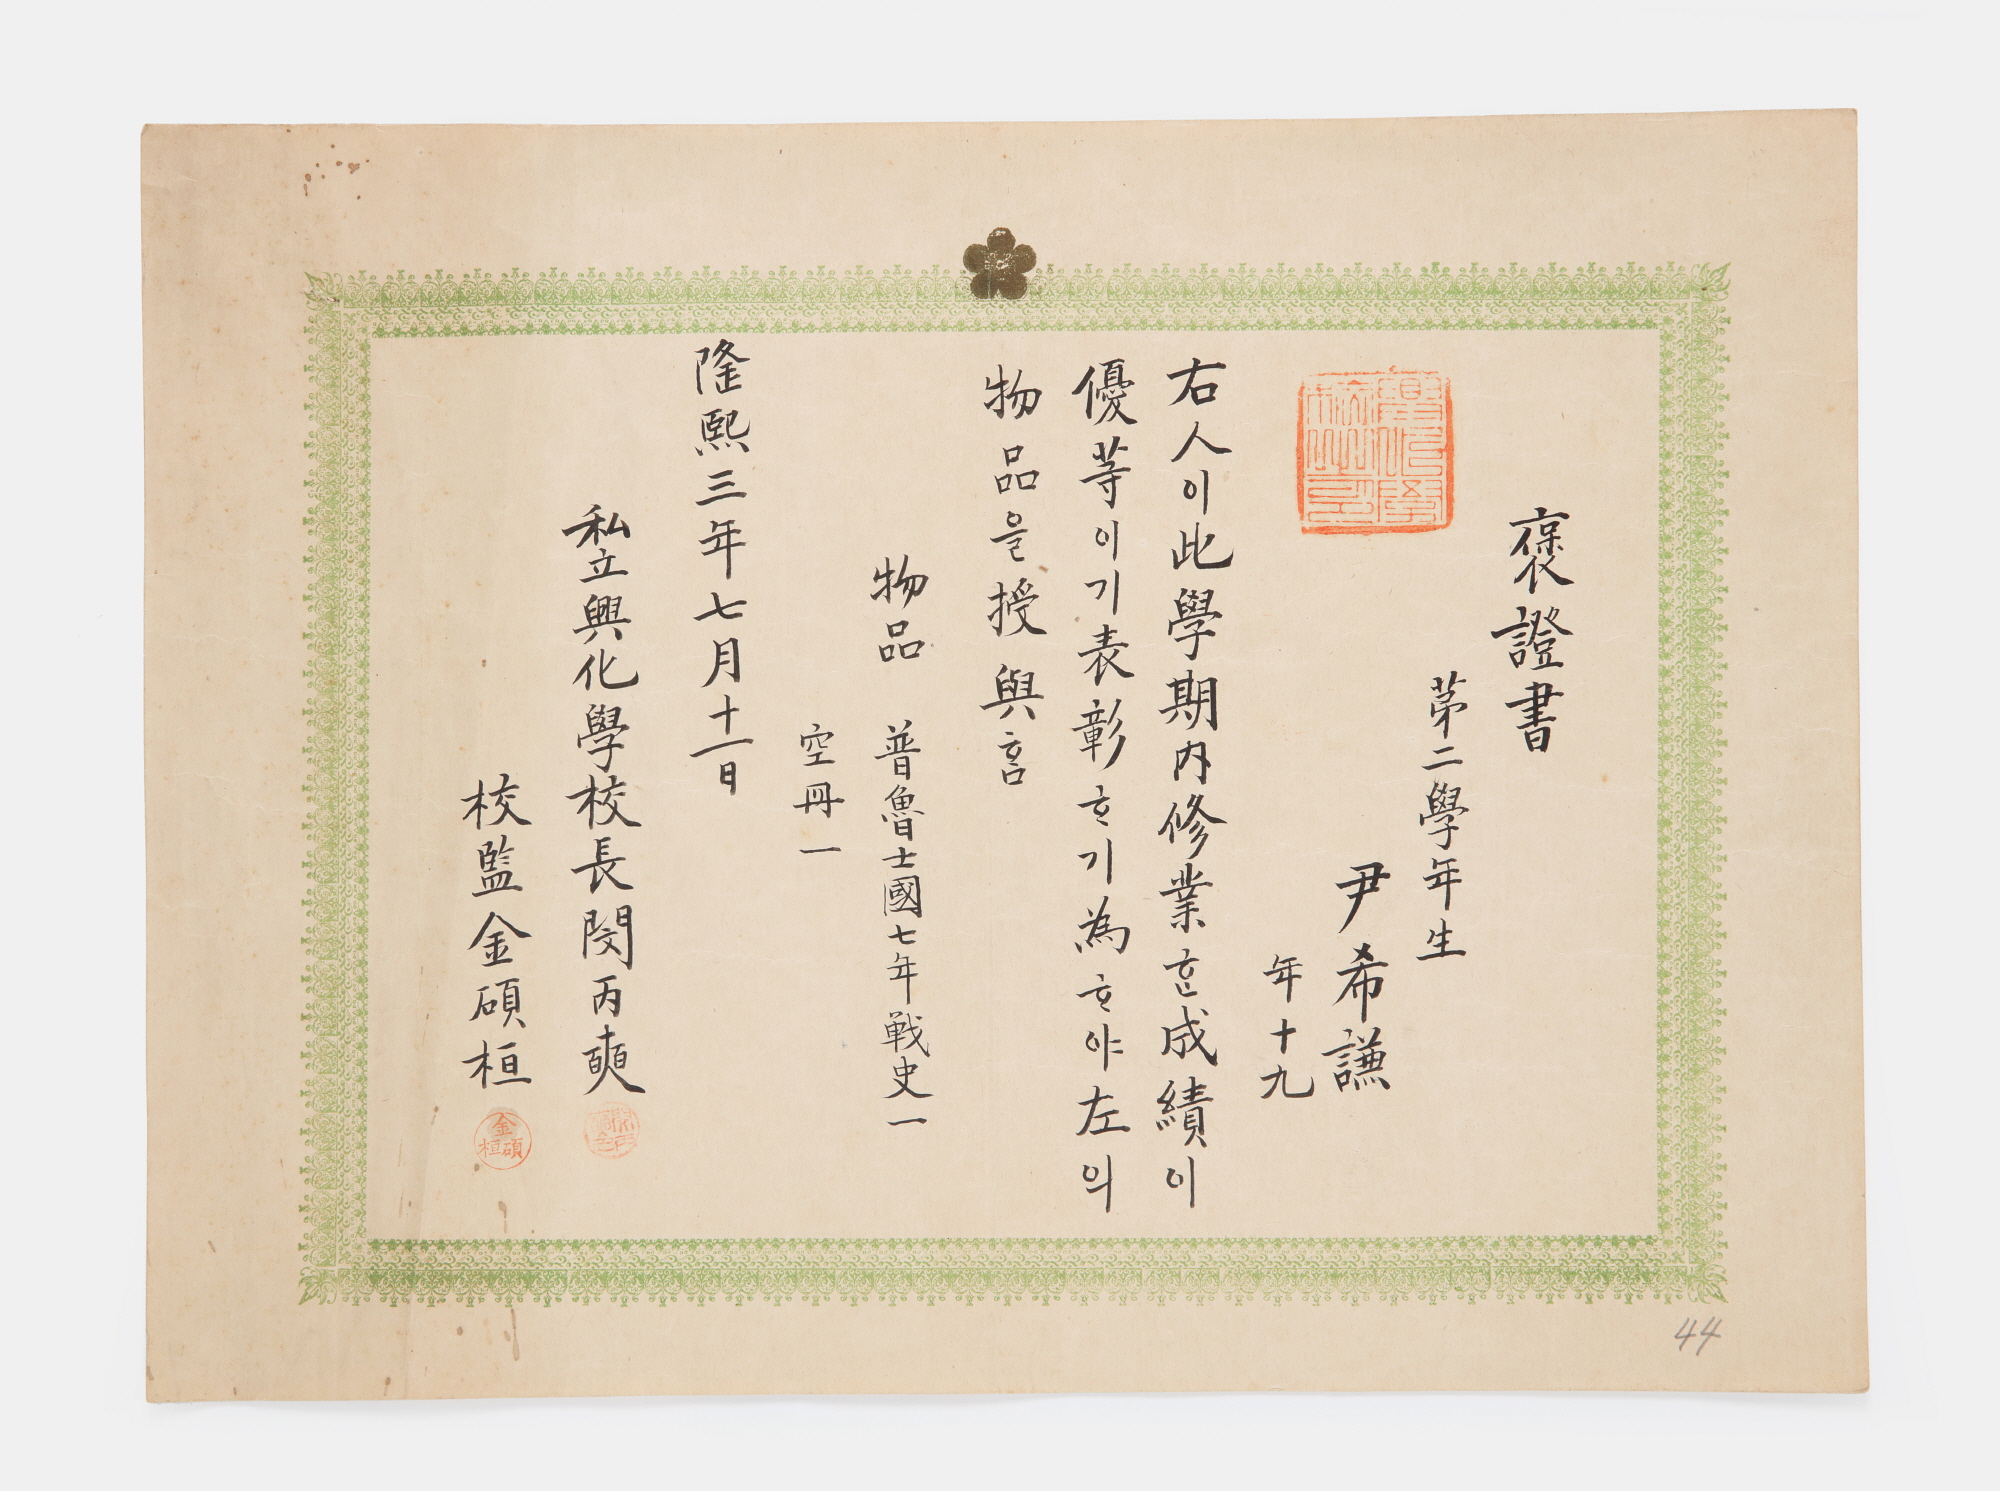 褒證書
第二學年生
尹希謙
年十九
右人이此學期內修業ᄒᆞᆫ成績이
優等이기表彰ᄒᆞ기爲ᄒᆞ야左의
物品을授與홈
物品 普魯士國七年戰史一
空冊一
隆熙三年七月十一日
私立興化學校長閔丙奭
校監金碩桓
金碩桓
44